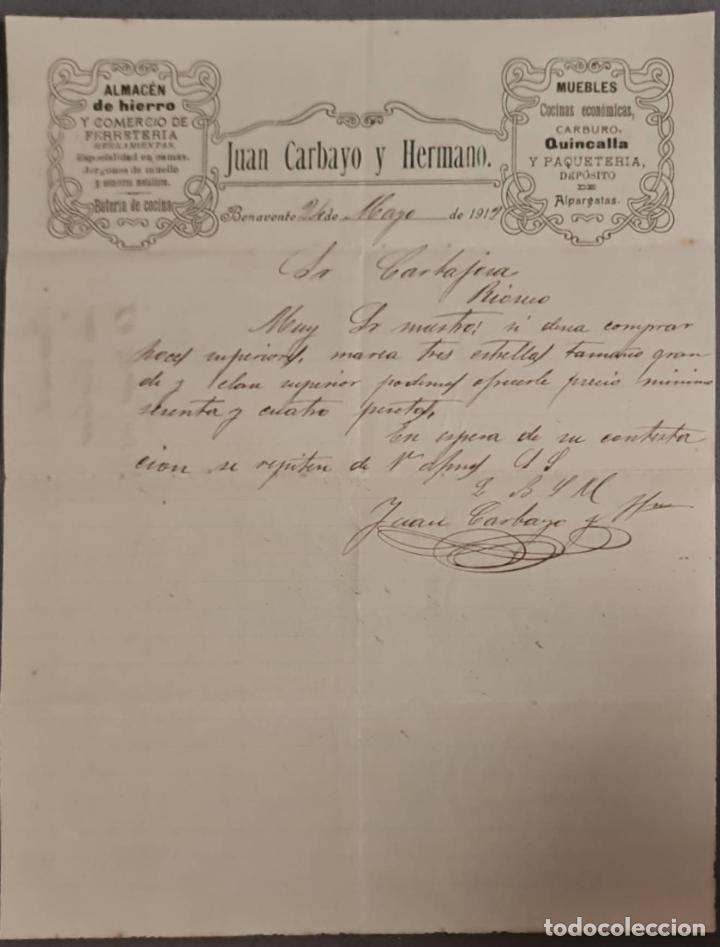 ALMACÉN
de hierro
Y COMERCIO DE
FERRETERIA
HERRAMIENTAS.
Especialidad en camas.
Jergones de muelle
y somiers metálicos.
Batería de cocina.
Juan Carbayo y Hermano.
MUEBLES
Cocinas económicas,
CARBURO,
Quincalla
Y PAQUETERIA,
DEPÓSITO
DE
Alpargatas.
Benavente 24 de Mayo de 191
Sr Carbajosa
Rioseco
Muy Sr nuestro; si desea comprar
hoces superiores, marca tres estrellas tamaño gran
de y clase superior podemos ofrecerle precio minimo
sesenta y cuatro pesetas,
En espera de su contesta
cion se repiten de V. S S
Q B S M
Juan Carbayo y Hno
todocoleccion.net